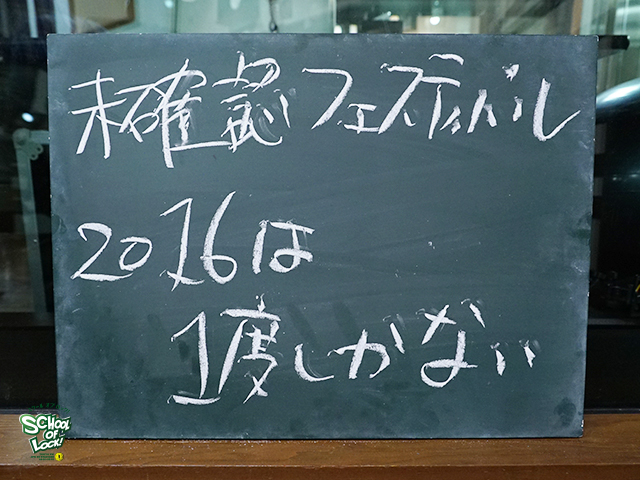 未確認フェスティバル
2016は
1度しかない
SCHOOL
OF
LOCK!